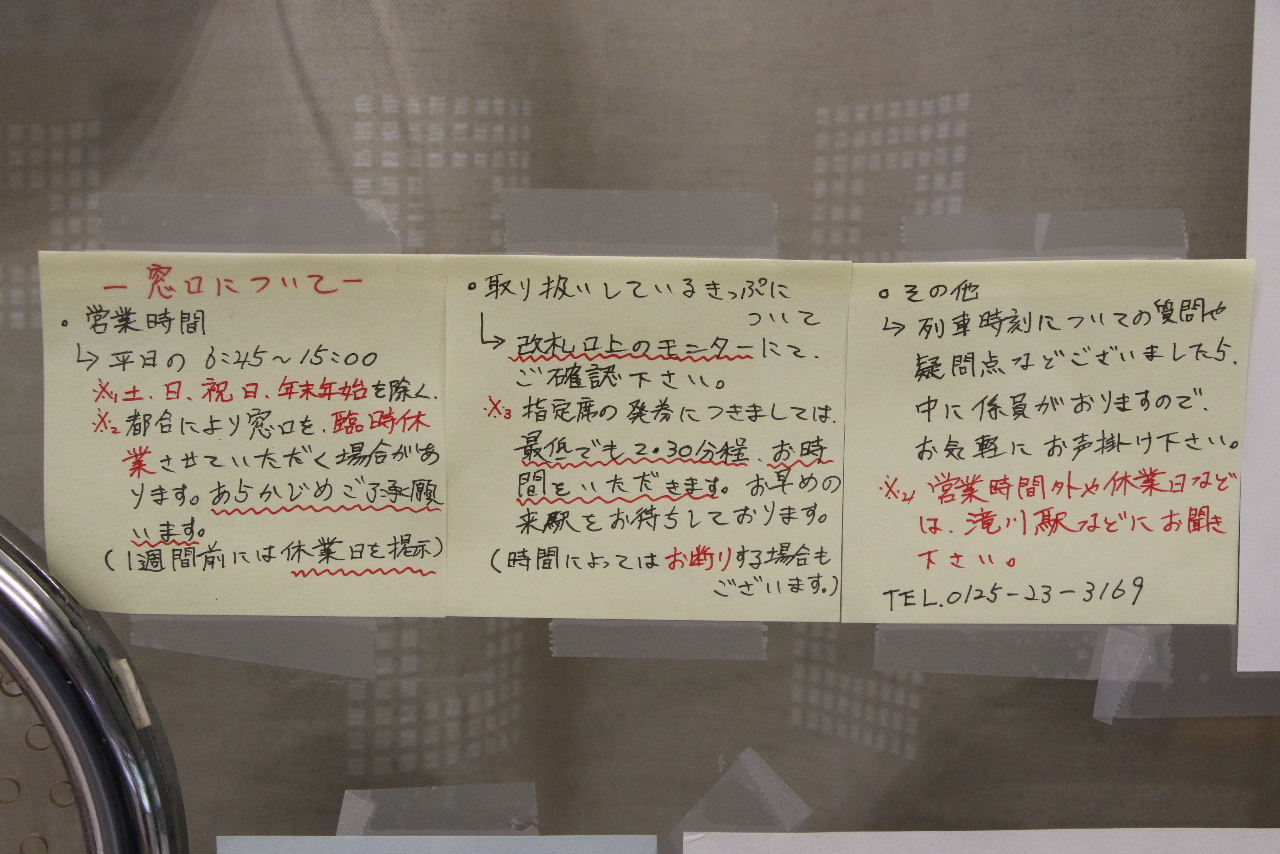 ー窓口についてー
• 営業時間
↳ 平日の 6:45～15:00
※1 土、日、祝日、年末年始を除く、
※2 都合により窓口を、臨時休
業させていただく場合があ
ります。あらかじめご了承願
います。
(1週間前には休業日を提示)
• 取り扱いしているきっぷに
ついて
↳ 改札口上のモニターにて、
ご確認下さい。
※3 指定席の発券につきましては、
最低でも20・30分程、お時
間をいただきます。お早めの
来駅をお待ちしております。
(時間によってはお断りする場合も
ございます。)
• その他
↳ 列車時刻についての質問や
疑問点などございましたら、
中に係員がおりますので、
お気軽にお声掛け下さい。
※4 営業時間外や休業日など
は、滝川駅などにお聞き
下さい。
TEL.0125-23-3169